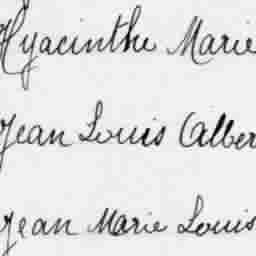 Hyacinthe Marie
Jean Louis Alber
Jean Marie Louis